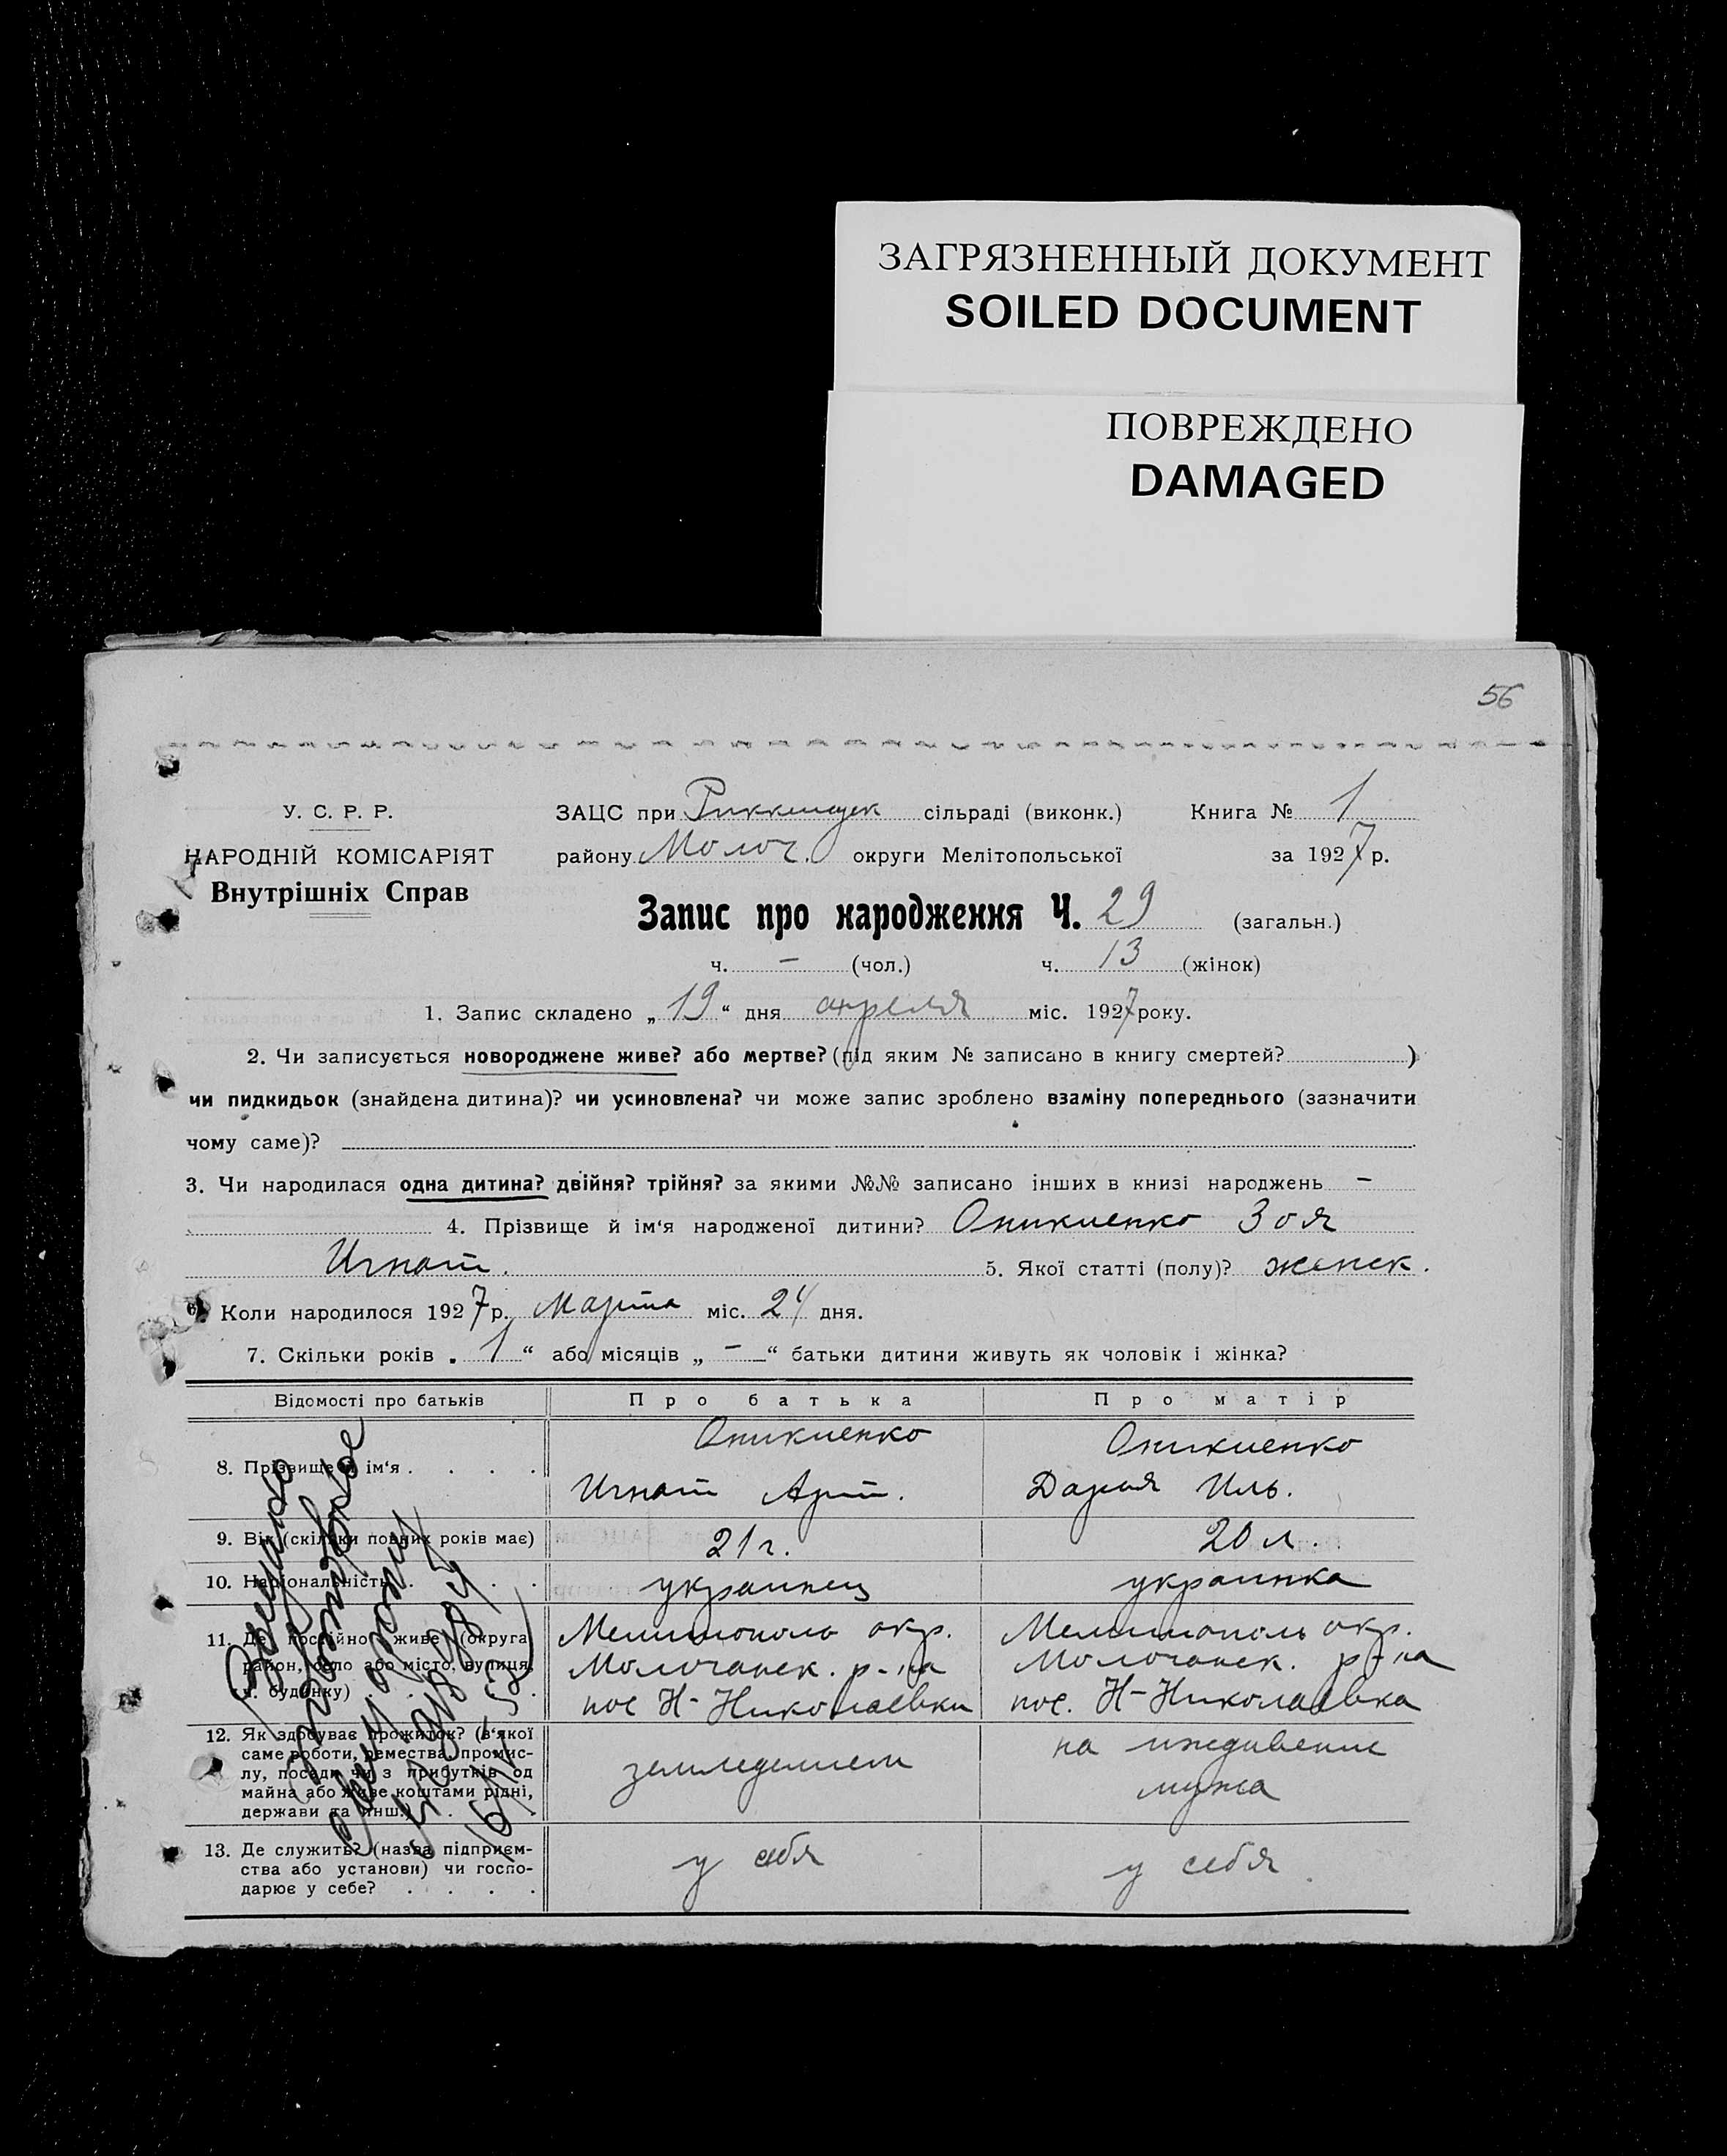 ЗАГРЯЗНЕННЫЙ ДОКУМЕНТ
SOILED DOCUMENT
ПОВРЕЖДЕНО
DAMAGED
56
У. С. Р. Р.
НАРОДНІЙ КОМІСАРІЯТ
Внутрішніх Справ
ЗАЦС при сільраді (виконк.) Книга № 1
району Молоч. округи Мелітопольської за 1927 р.
Запис про народження Ч. 29 (загальн.)
ч. – (чол.) ч. 13 (жінок)
1. Запис складено „ 19 “ дня апреля міс. 1927 року.
2. Чи записується новороджене живе? або мертве? (під яким № записано в книгу смертей? )
чи пидкидьок (знайдена дитина)? чи усиновлена? чи може запис зроблено взаміну попереднього (зазначити
чому саме)?
3. Чи народилася одна дитина? двійня? трійня? за якими №№ записано інших в книзі народжень –
4. Прізвище й ім‘я народженої дитини? Оникиенко Зоя
Игнат. 5. Якої статті (полу)? женск.
6. Коли народилося 1927 р. Марта міс. 24 дня.
7. Скільки років „ 1 “ або місяців „ – “ батьки дитини живуть як чоловік і жінка?
Відомості про батьків Про батька Про матір
8. Прізвище й ім‘я . . . . Оникиенко Оникиенко
Игнат Арт. Дарья Иль.
9. Вік (скільки повних років має) 21 г. 20 л.
10. Національність . . . . украинец украинка
11. Де постійно живе (округа, Мелитополь окр. Мелитополь окр.
район, село або місто, вулиця, Молочанск. р-на Молочанск. р-на
ч. будинку) . . . пос Н-Николаевки пос. Н-Николаевка
12. Як здобуває прожиток? (з‘якої
саме роботи, ремества, промис-
лу, посади чи з прибутків од
майна або живе коштами рідні,
держави та инш.) . . . земледелием на иждивение
мужа
13. Де служить? (назва підприєм-
ства або установи) чи госпо-
дарює у себе? . . . . у себя у себя